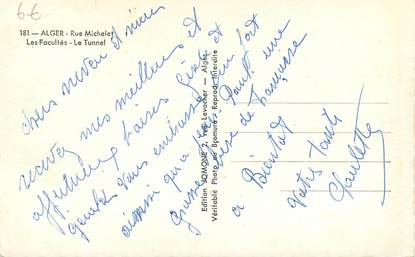 6€
181 — ALGER - Rue Michelet
Les Facultés - Le Tunnel
chers neveu et nièce
recevez mes meilleurs et
affectueux baisers
gentils vous embrasse bien fort
ainsi qu'a
grosse bise de
a Bientôt
votre tante
Claudette
Edition JOMONE 2, rue Levacher — Alger
Véritable Photo au Bromure - Reprod. Interdite